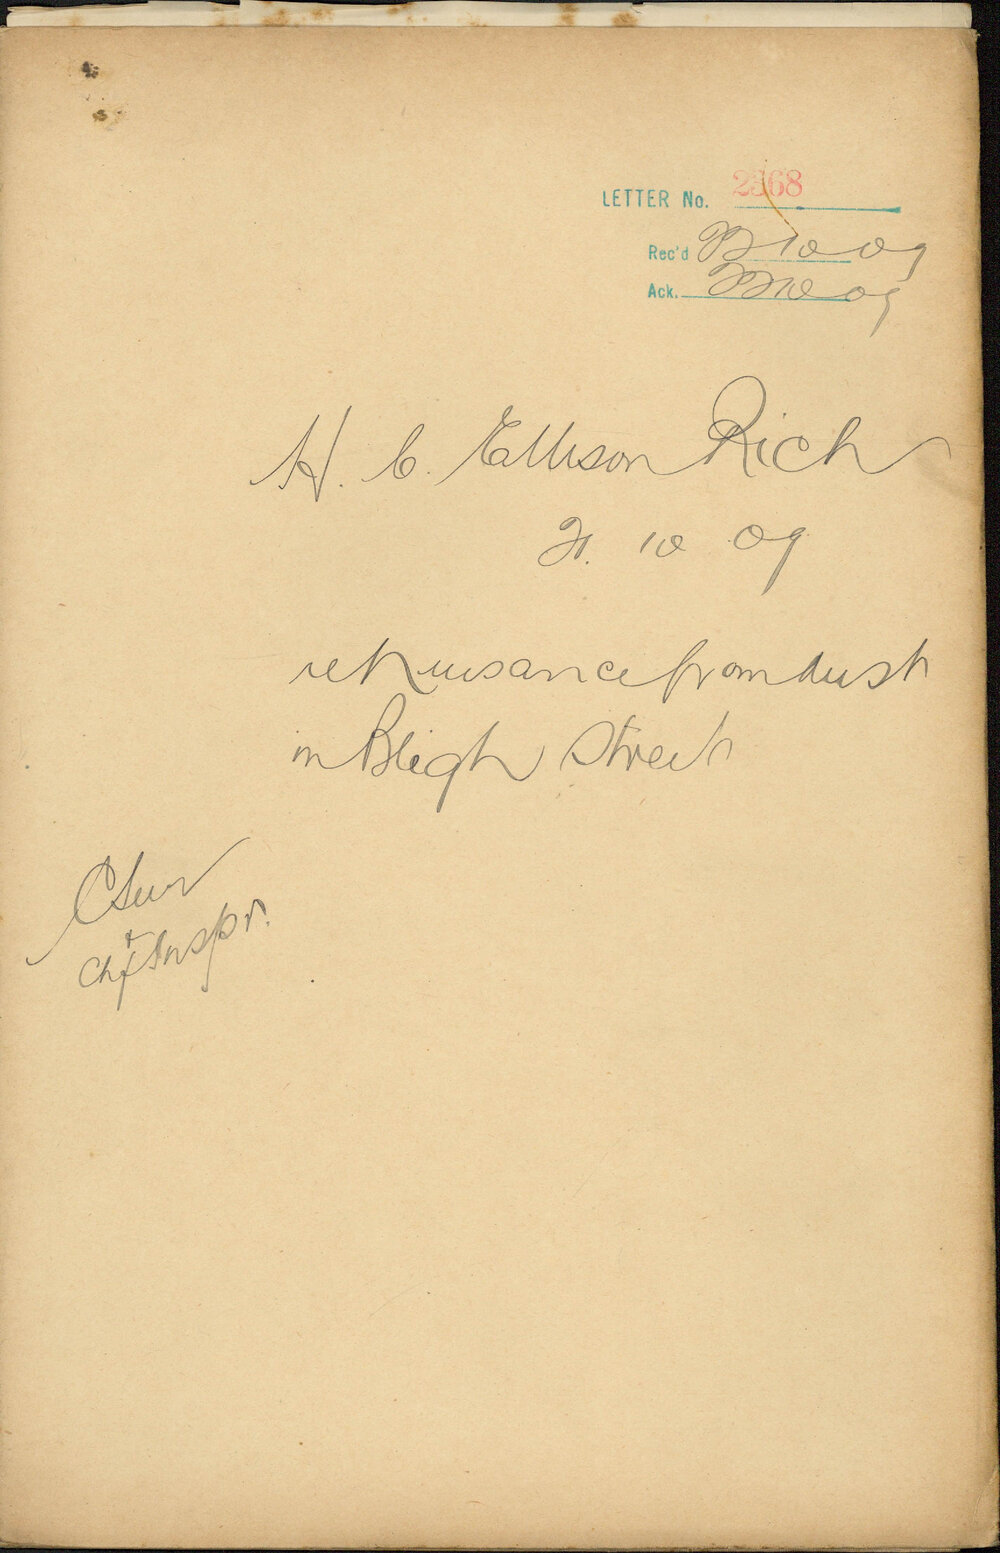 LETTER No. 2368
Rec'd 22 10 09
Ack. 22 10 09
H. C. Ellison Rich
21. 10 09
re Nuisance from dust
in Bligh Street
Chf Inspr.